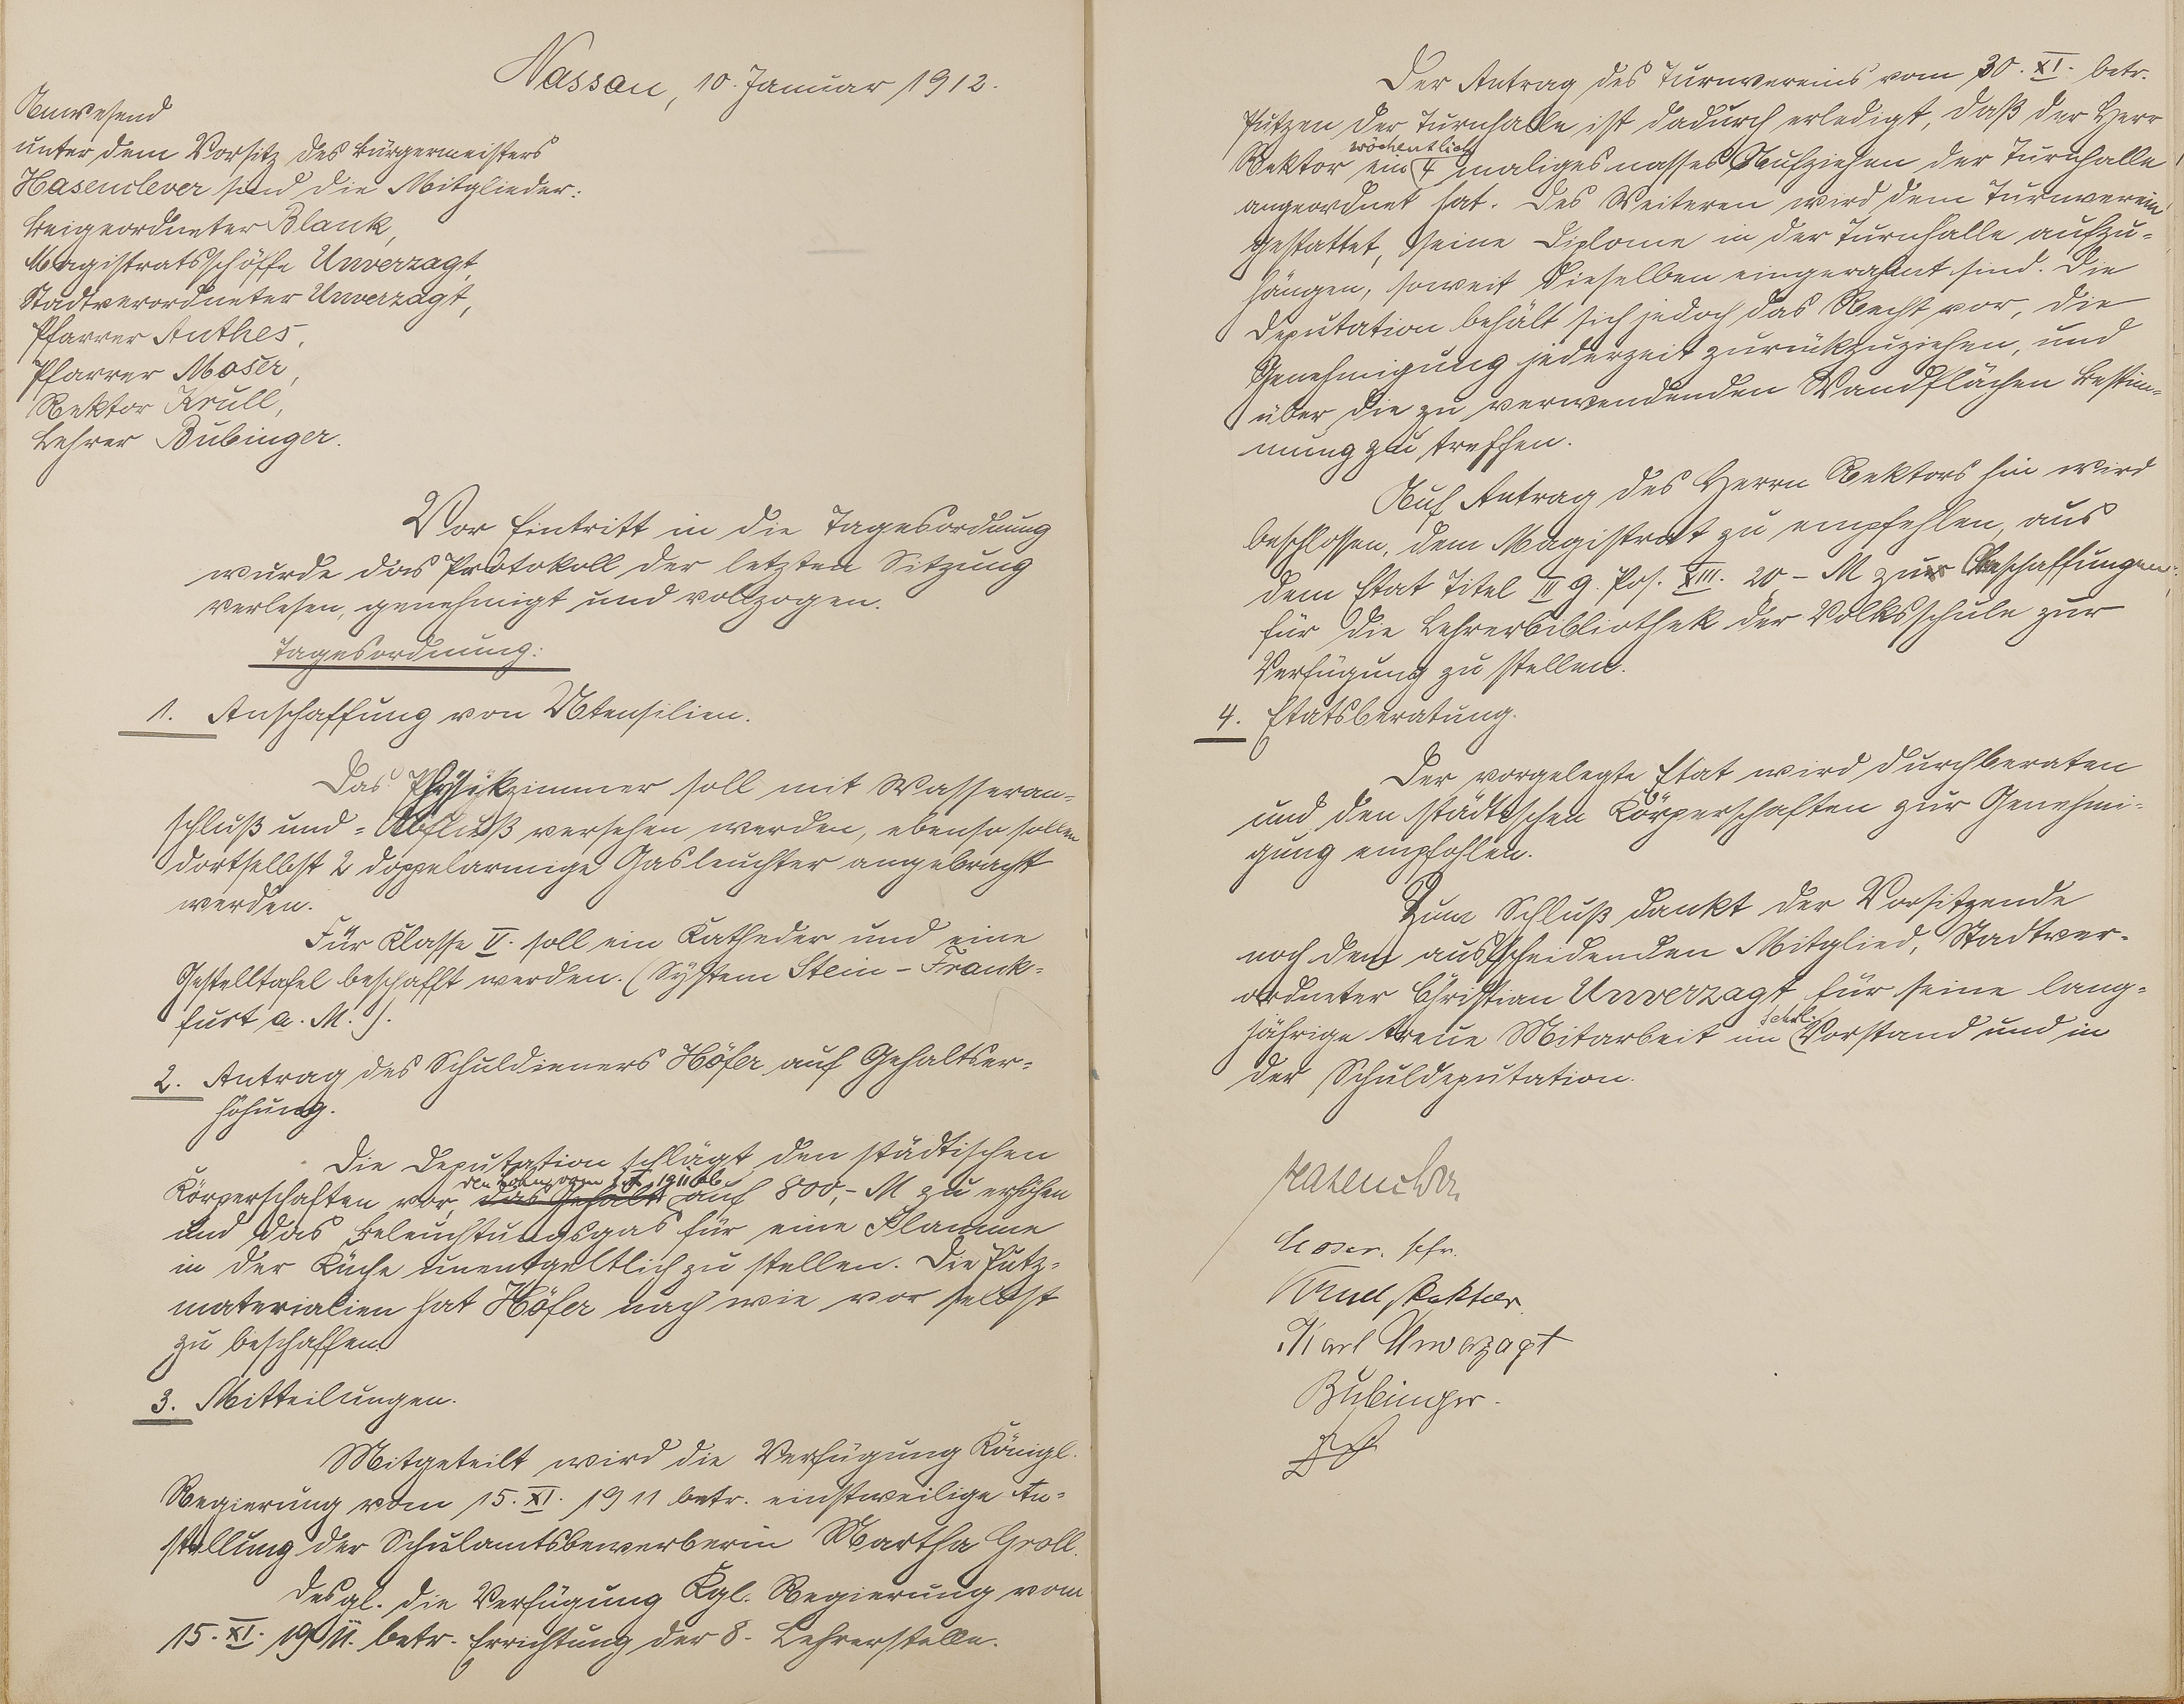 Nassau, 10. Januar 1912.
Anwesend
unter dem Vorsitz des Bürgermeisters
Hasenclever sind die Mitglieder:
Beigeordneter Blank,
Magistratsschöffe Unverzagt,
Stadtverordneter Unverzagt,
Pfarrer Anthes,
Pfarrer Moser,
Rektor Krull,
Lehrer Bubinger.
Vor Eintritt in die Tagesordnung
wurde das Protokoll der letzten Sitzung
verlesen, genehmigt und vollzogen.
Tagesordnung:
1. Anschaffung von Utensilien.
Das Physikzimmer soll mit Wasseran-
schluß und -Abfluß versehen werden, ebenso sollen
dortselbst 2 doppelarmige Gasleuchter angebracht
werden.
Für Klasse V. soll ein Katheder und eine
Gestelltafel beschafft werden. (System Stein-Frank-
furt a. M.).
2. Antrag des Schuldieners Höfer auf Gehaltser-
höhung.
Die Deputation schlägt den städtischen
den Lohn vom 1. 1911 ab
Körperschaften vor, das Gehalt auf 800,- M zu erhöhen
und das Beleuchtungsgas für eine Flamme
in der Küche unentgeltlich zu stellen. Die Putz-
materialien hat Höfer nach wie vor selbst
zu beschaffen.
3. Mitteilungen.
Mitgeteilt wird die Verfügung Königl.
Regierung vom 15. XI. 1911 betr. einstweilige An-
stellung der Schulamtsbewerberin Martha Groll.
Desgl. die Verfügung Kgl. Regierung vom
15. XI. 1911. betr. Errichtung der 8. Lehrerstelle.
Der Antrag des Turnvereins vom 30. XI. betr.
Putzen der Turnhalle ist dadurch erledigt, daß der Herr
wöchentlich
Rektor ein maliges nasses Aufziehen der Turnhalle
angeordnet hat. Des Weiteren wird dem Turnverein
gestattet, seine Diplome in der Turnhalle aufzu-
hängen, soweit dieselben eingerahmt sind. Die
Deputation behält sich jedoch das Recht vor, die
Genehmigung jederzeit zurückzuziehen, und
über die zu verwendenden Wandflächen Bestim-
mung zu treffen.
Auf Antrag des Herrn Rektors hin wird
beschlossen, dem Magistrat zu empfehlen, aus
dem Etat Titel III 9. Pos. XIII. 20 - M zur Beschaffungen
für die Lehrerbibliothek der Volksschule zur
Verfügung zu stellen.
4. Etatsberatung.
Der vorgelegte Etat wird durchberaten
und den städtischen Körperschaften zur Genehmi-
gung empfohlen.
Zum Schluß dankt der Vorsitzende
noch dem ausscheidenden Mitglied, Stadtver-
ordneter Christian Unverzagt für seine lang-
jährige treue Mitarbeit im Schul- Vorstand und in
der Schuldeputation.
Hasenclever.
Moser. Pfr.
Krull, Rektor.
Karl Unverzagt
Bubinger.